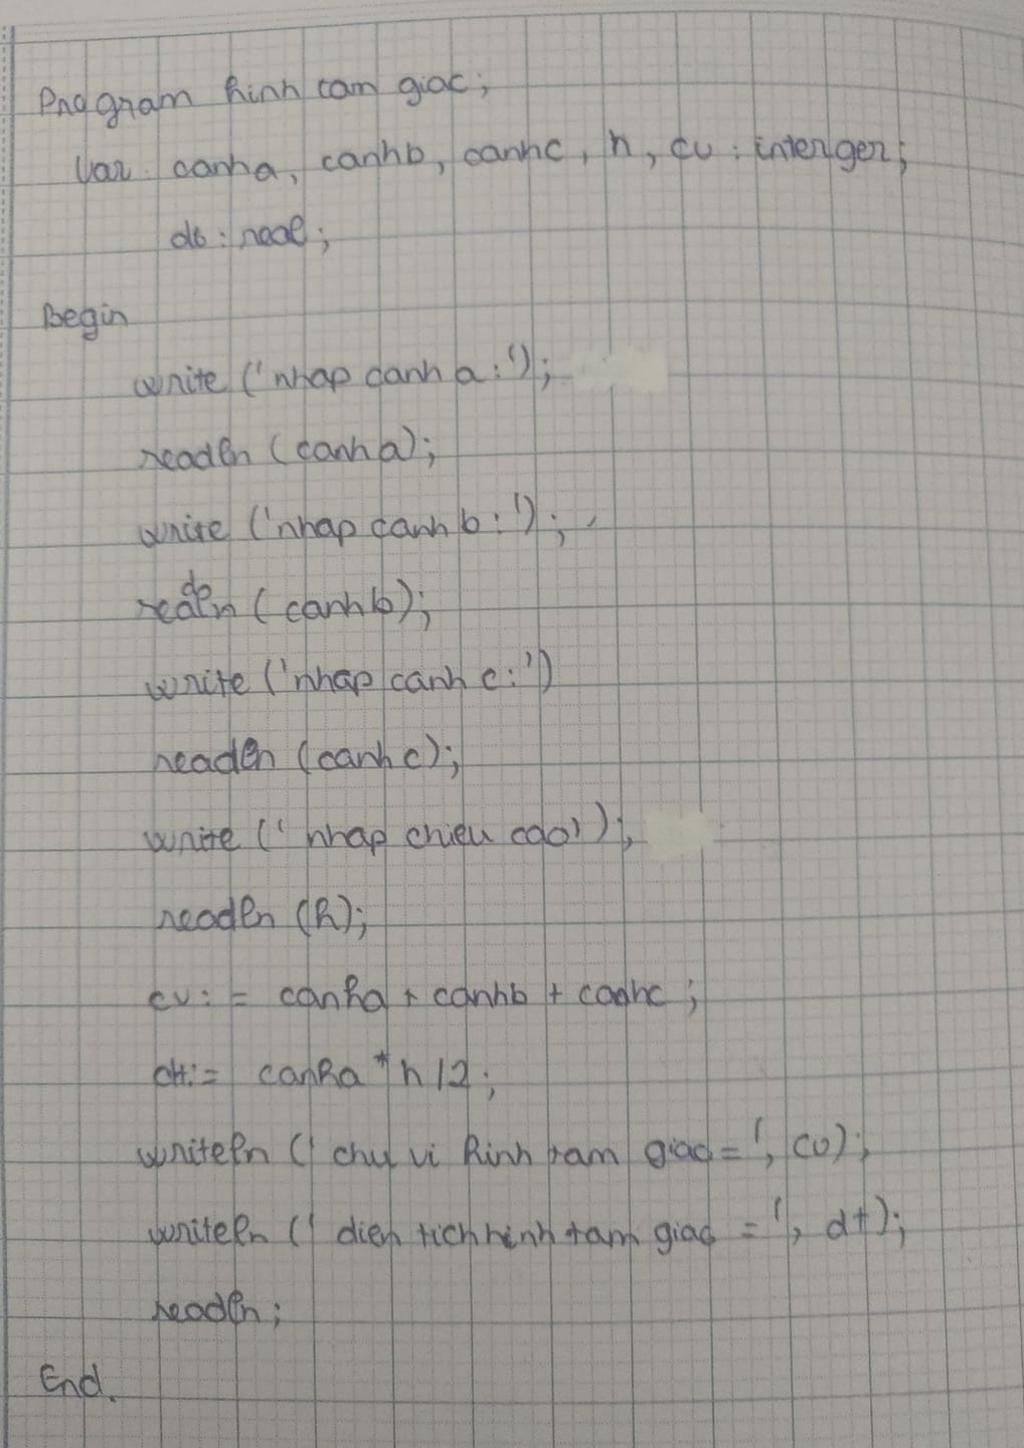 Program hinh tam giac;
Var canha, canhb, canhc, h, cv : interger;
dt : real;
Begin
write ('nhap canh a:');
readln (canh a);
write ('nhap canh b:');
readln (canhb);
write ('nhap canh c:')
readln (canh c);
write (' nhap chieu cao');
readln (h);
cv: = canha + canhb + canhc ;
dt: = canha * h / 2 ;
writeln (' chu vi hinh tam giac = ', cv);
writeln (' dien tich hinh tam giac = ', dt);
readln ;
End.